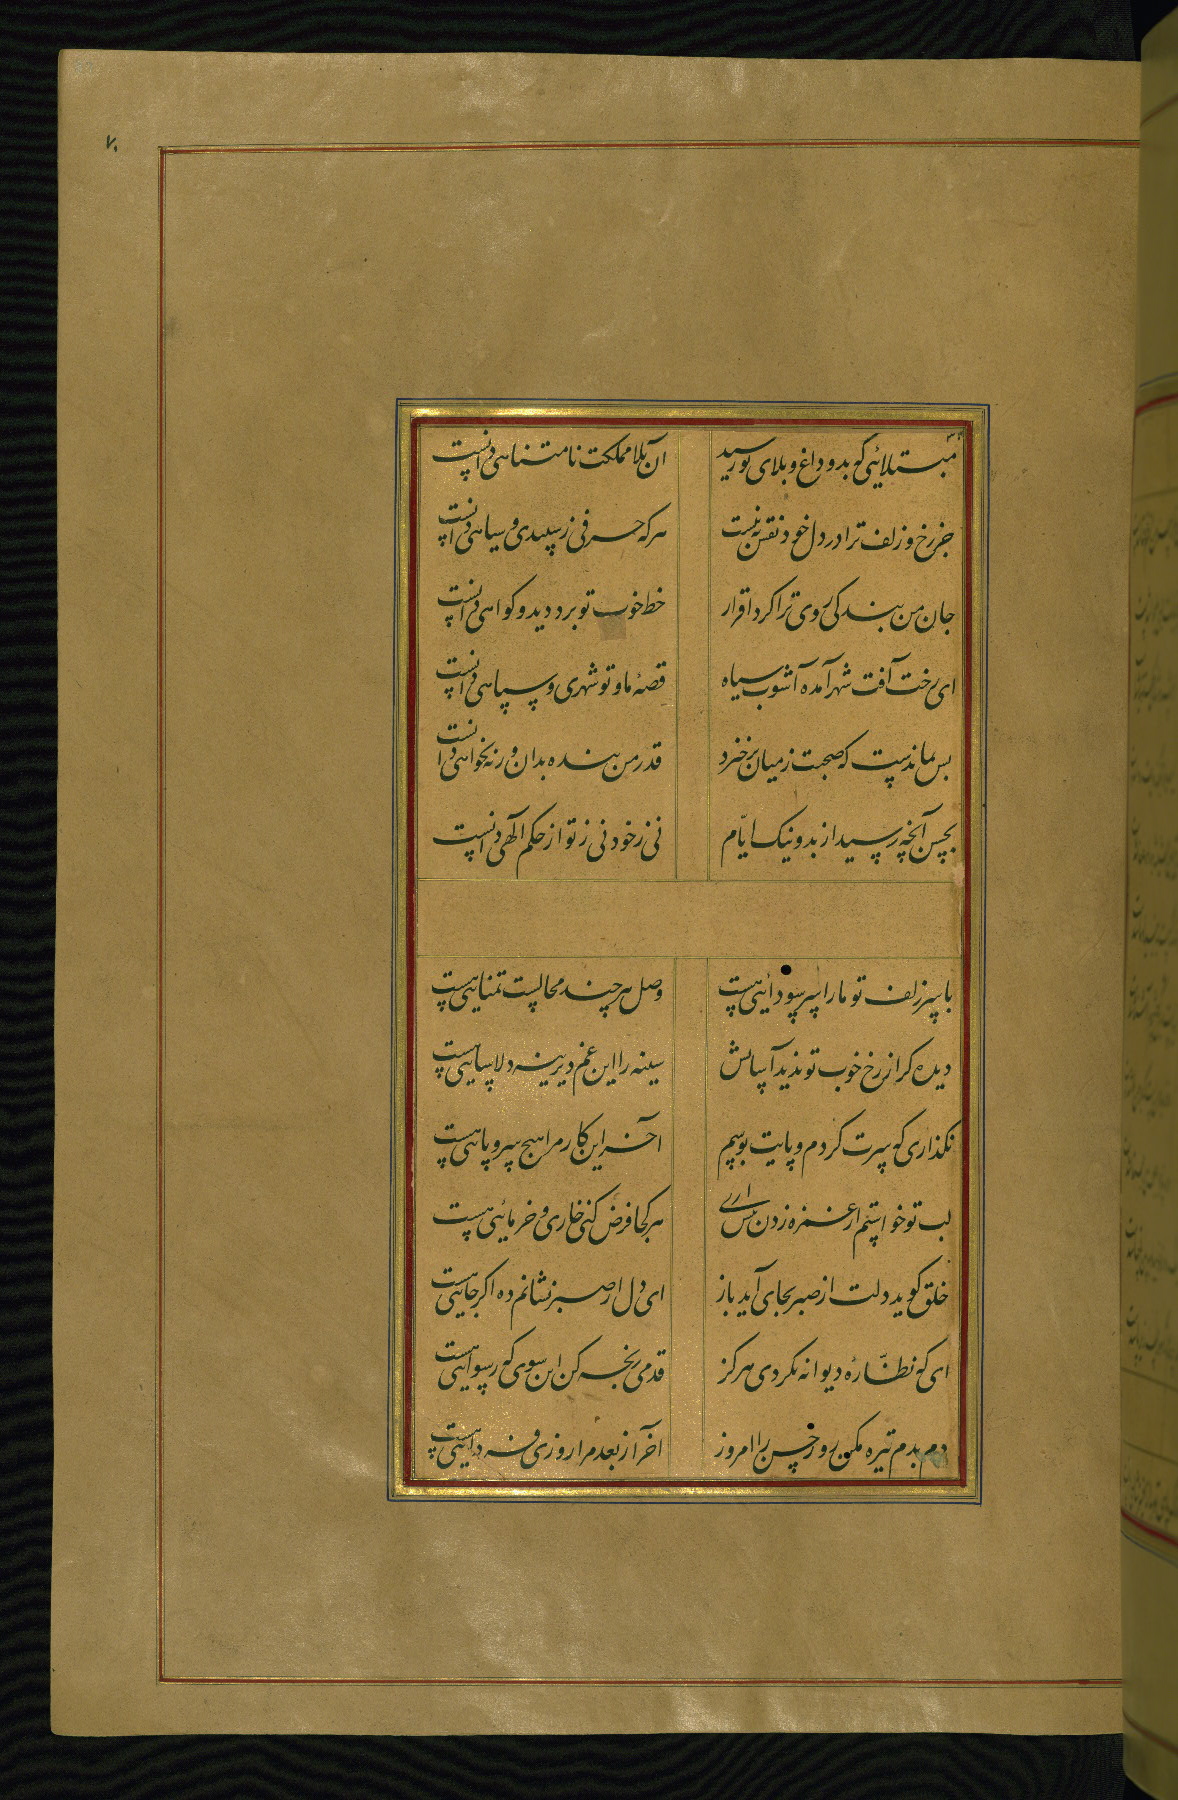 ۷۰
مبتلائی که بدو داغ و بلای تو رسید
آن بلا مملکت نامتناهی دانست
جز رخ و زلف ترا در دل خود نقش نبست
هرکه حرفی ز سپیدی و سیاهی دانست
جان من بندکی روی ترا کرد اقرار
خط خوب تو برو دید و کواهی دانست
ای رخت آفت شهر آمده آشوب سپاه
قصهٔ ما و تو شهری و سپاهی دانست
بس نماندست که صحبت ز میان برخیزد
قدر من بنده بدان ورنه نخواهی دانست
بحسن آنچه رسید از بد و نیک ایّام
نی ز خود نی ز تو از حکم الهی دانست
با سر زلف تو ما را سر سودائی هست
وصل هر چند محالست تمنایی هست
دیده کر از رخ خوب تو ندید آسایش
سینه را این غم دیرینه دلاسایی هست
نکذاری که سرت کردم و پایت بوسم
آخر این کار مرا هیچ سر و پایی هست
لب تو خواستم از غمزه زدن بس آری
هر کجا فرض کنی خاری و خرمائی هست
خلق کوید دلت از صبر بجای آید باز
ای دل از صبر نشانم ده اکر جایی هست
ای که نظّارهٔ دیوانه نکردی هرکز
قدمی رنجه کن این سوی که رسوایی هست
دم بدم تیره مکن روز حسن را امروز
آخر از بعد مرا روزی و فردایی هست